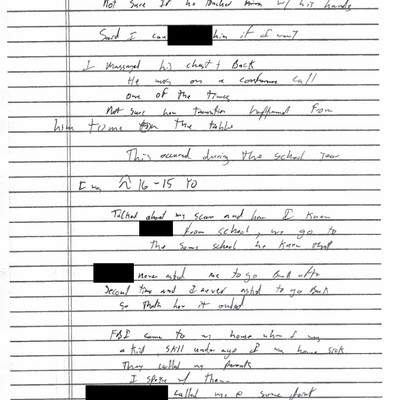 Not sure if he touched him w/ his hands
Said I can him if I want
I massaged his chest + Back
He was on a conference call
one of the times
Not sure how transition happened from
him to me on the table
This occured during the school year
I was 16-15 YO
Talked about my scar and how I knew
from school, we go to
the same school he knew that
never asked me to go Back after
Second time and I never asked to go Back
so thats how it ended
FBI came to my home when I was
a kid still under age I was home sick
They called my parents
I spoke w/ them
called me @ some point